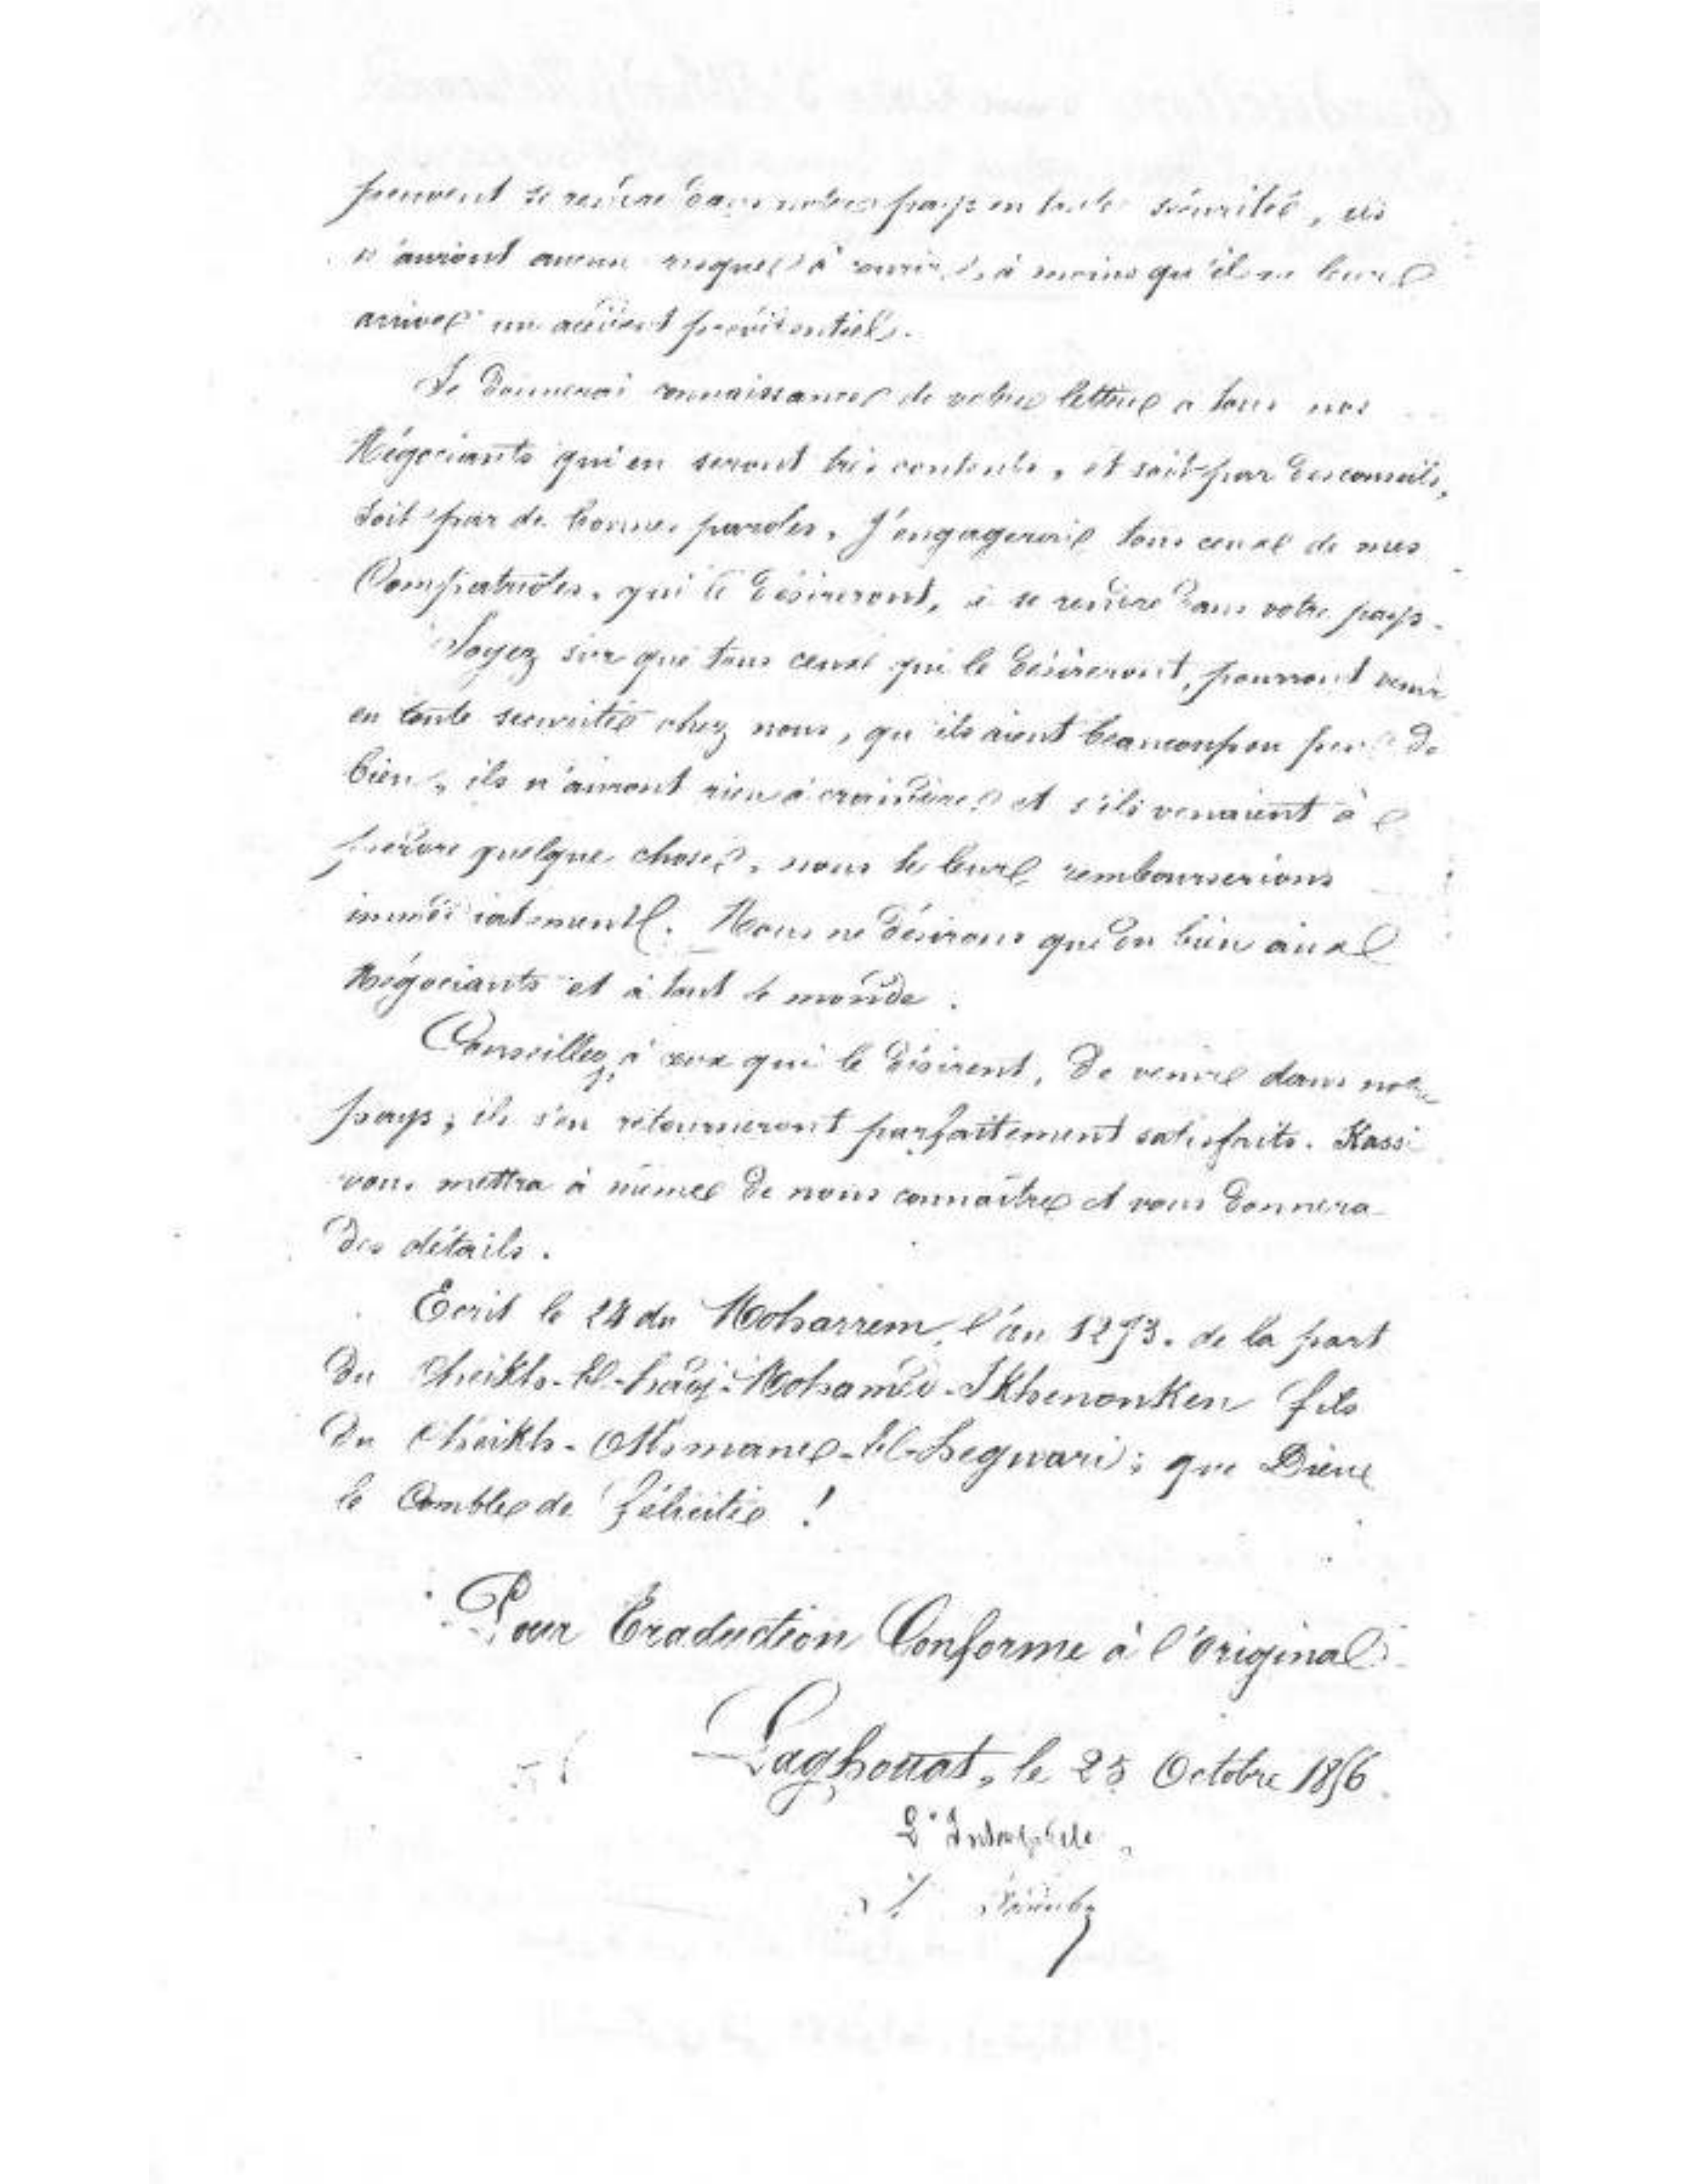 peuvent se rendre dans notre pays en toute sécurité, ils
n'auront aucun risque à courir, à moins qu'il ne leur
arrive un accident providentiel.
Je donnerai connaissance de votre lettre a tous nos
Négociants qui en seront très contents, et soit par des conseils,
soit par de bonnes paroles, J'engagerai tous ceux de mes
Compatriotes, qui le désireront, à se rendre dans votre pays.
Soyez sûr que tous ceux qui le désireront, pourront venir
en toute securité chez nous, qu'ils aient beaucoup ou peu de
bien, ils n'auront rien à craindre et s'ils venaient à
perdre quelque chose, nous le leur rembourserions
immédiatement. Nous ne désirons que du bien aux
Négociants et à tout le monde.
Conseillez, à ceux qui le désirent, de venir dans notre
pays; ils s'en retourneront parfaitement satisfaits. Kassi
vous mettra à même de nous connaître et vous donnera
des détails.
Ecrit le 24 du Moharrem, l'an 1273. de la part
du Cheikh-El-hadj-Mohamed-Ikhenouken fils
du Cheikh-Othmane-El-; que Dieu
le Comble de félicité !
Pour Traduction Conforme à l'Original
Laghouat, le 25 Octobre 1856.
L'Interprète